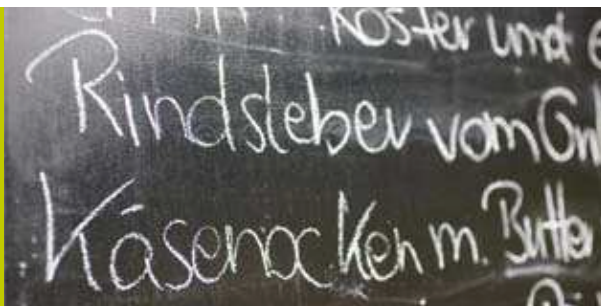 Köster und
Rindsleber vom
Käsenocken m. Butter